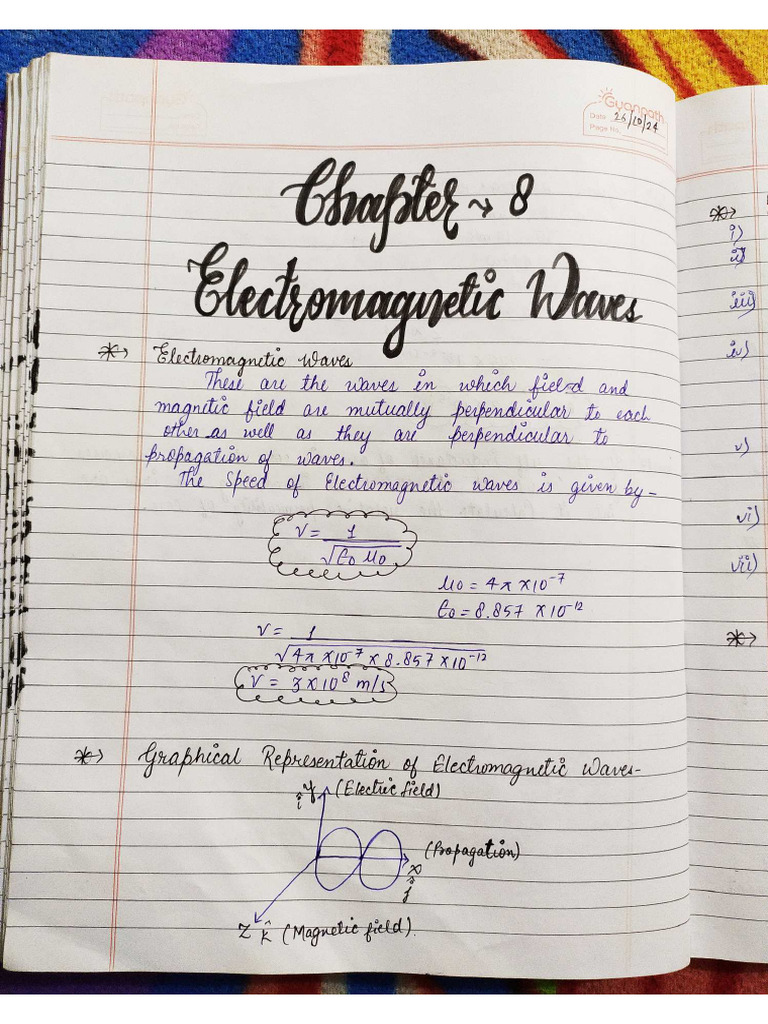 Gyanpath
Date 26/10/24
Page No.
Chapter → 8
Electromagnetic Waves
Electromagnetic Waves
These are the waves in which field and
magnetic field are mutually perpendicular to each
other as well as they are perpendicular to
propagation of waves.
The Speed of Electromagnetic waves is given by -
V = 1
√Є0 μ0
μ0 = 4π × 10⁻⁷
Є0 = 8.857 × 10⁻¹²
V = 1
√4π × 10⁻⁷ × 8.857 × 10⁻¹²
V = 3 × 10⁸ m/s
Graphical Representation of Electromagnetic Waves-
î y (Electric field)
(Propagation)
x
ĵ
Z k̂ (Magnetic field).
i)
ii)
iii)
iv)
v)
vi)
vii)